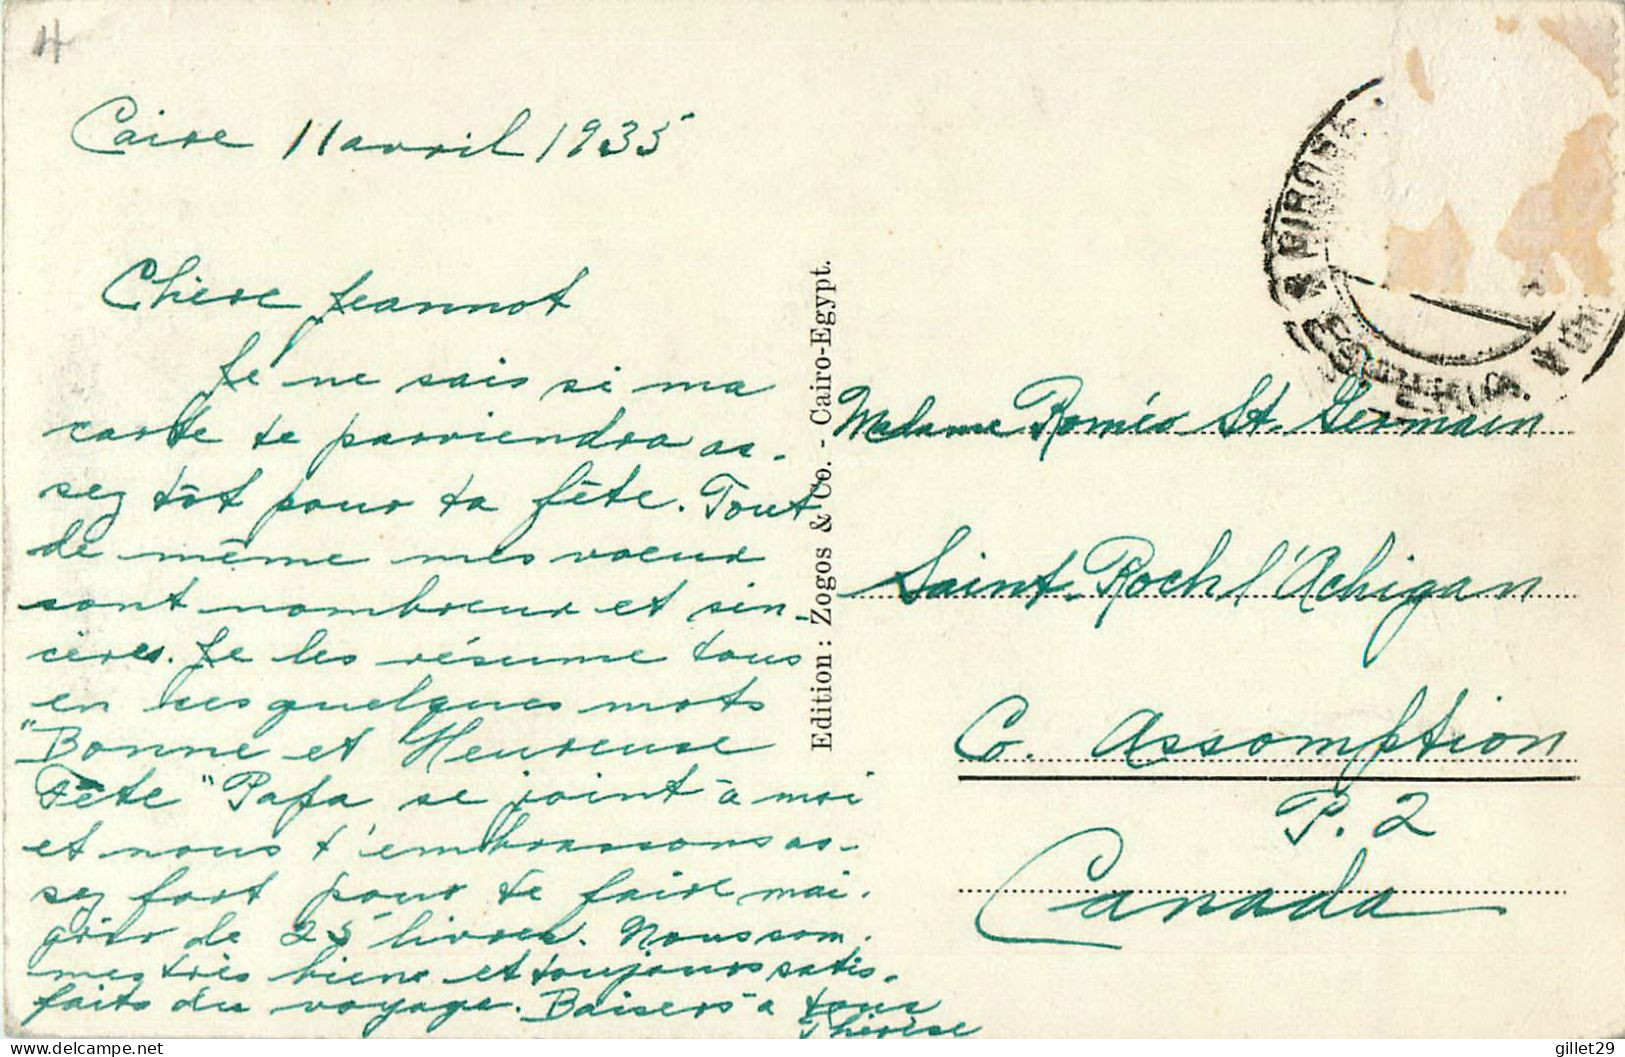 4
Caire 11 avril 1935
Chère Jeannot
Je ne sais si ma
carte te parviendra as-
sez tôt pour ta fête. Tout
de même mes voeux
sont nombreux et sin-
cères. Je les résume tous
en ces quelques mots
"Bonne et Heureuse
Fête" Papa se joint à moi
et nous t'embrassons as-
sez fort pour te faire mai-
grir de 25 livres. Nous som-
mes très biens et toujours satis-
faits du voyage. Baisers à tous
Thérèse
Edition : Zogos & Co. - Cairo-Egypt.
Madame Roméo St. Germain
Saint-Roch l'Achigan
Co. Assomption
P. 2
Canada
gillet29